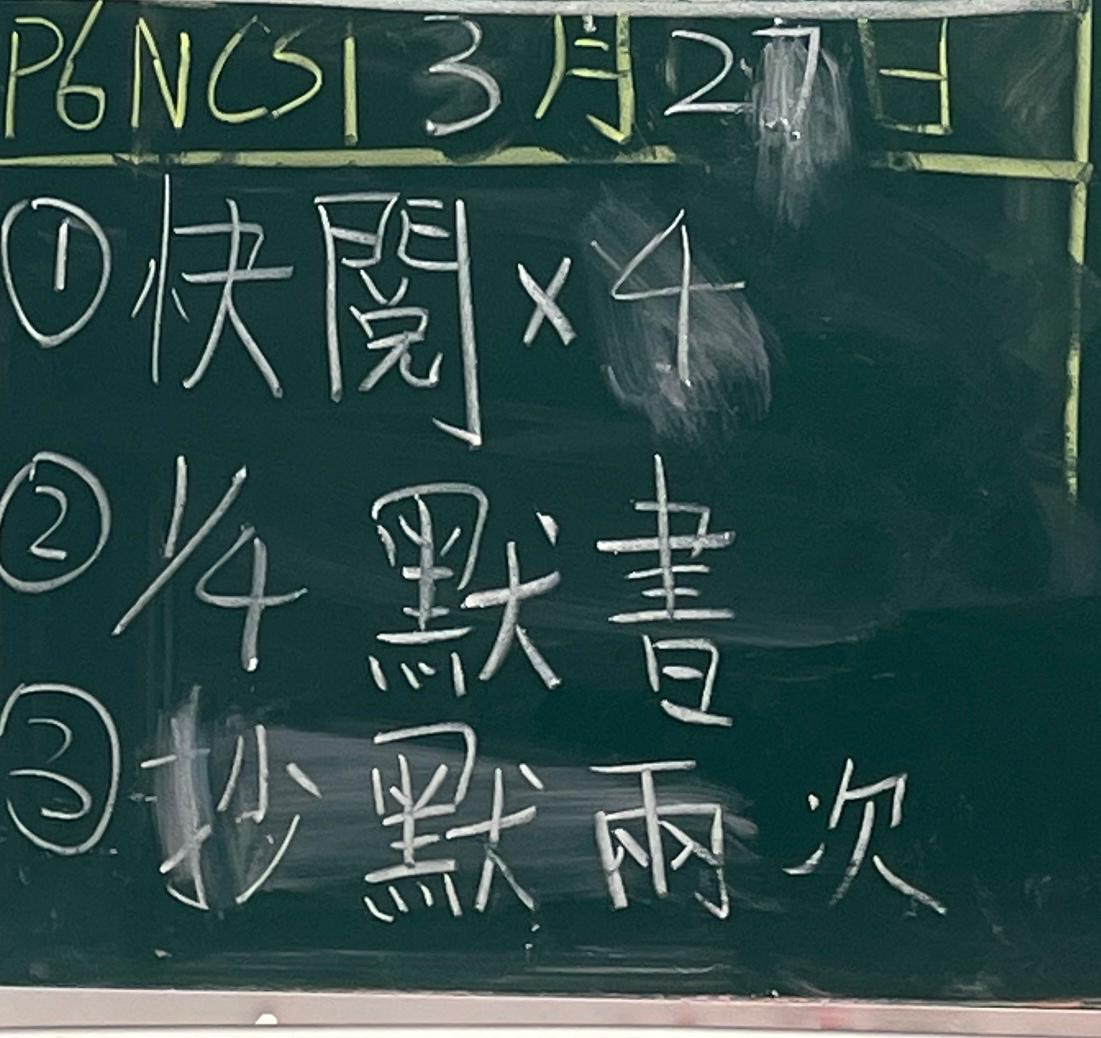 P6NCS1 3月27日
① 快閱×4
② 1/4 默書
③ 抄默兩次